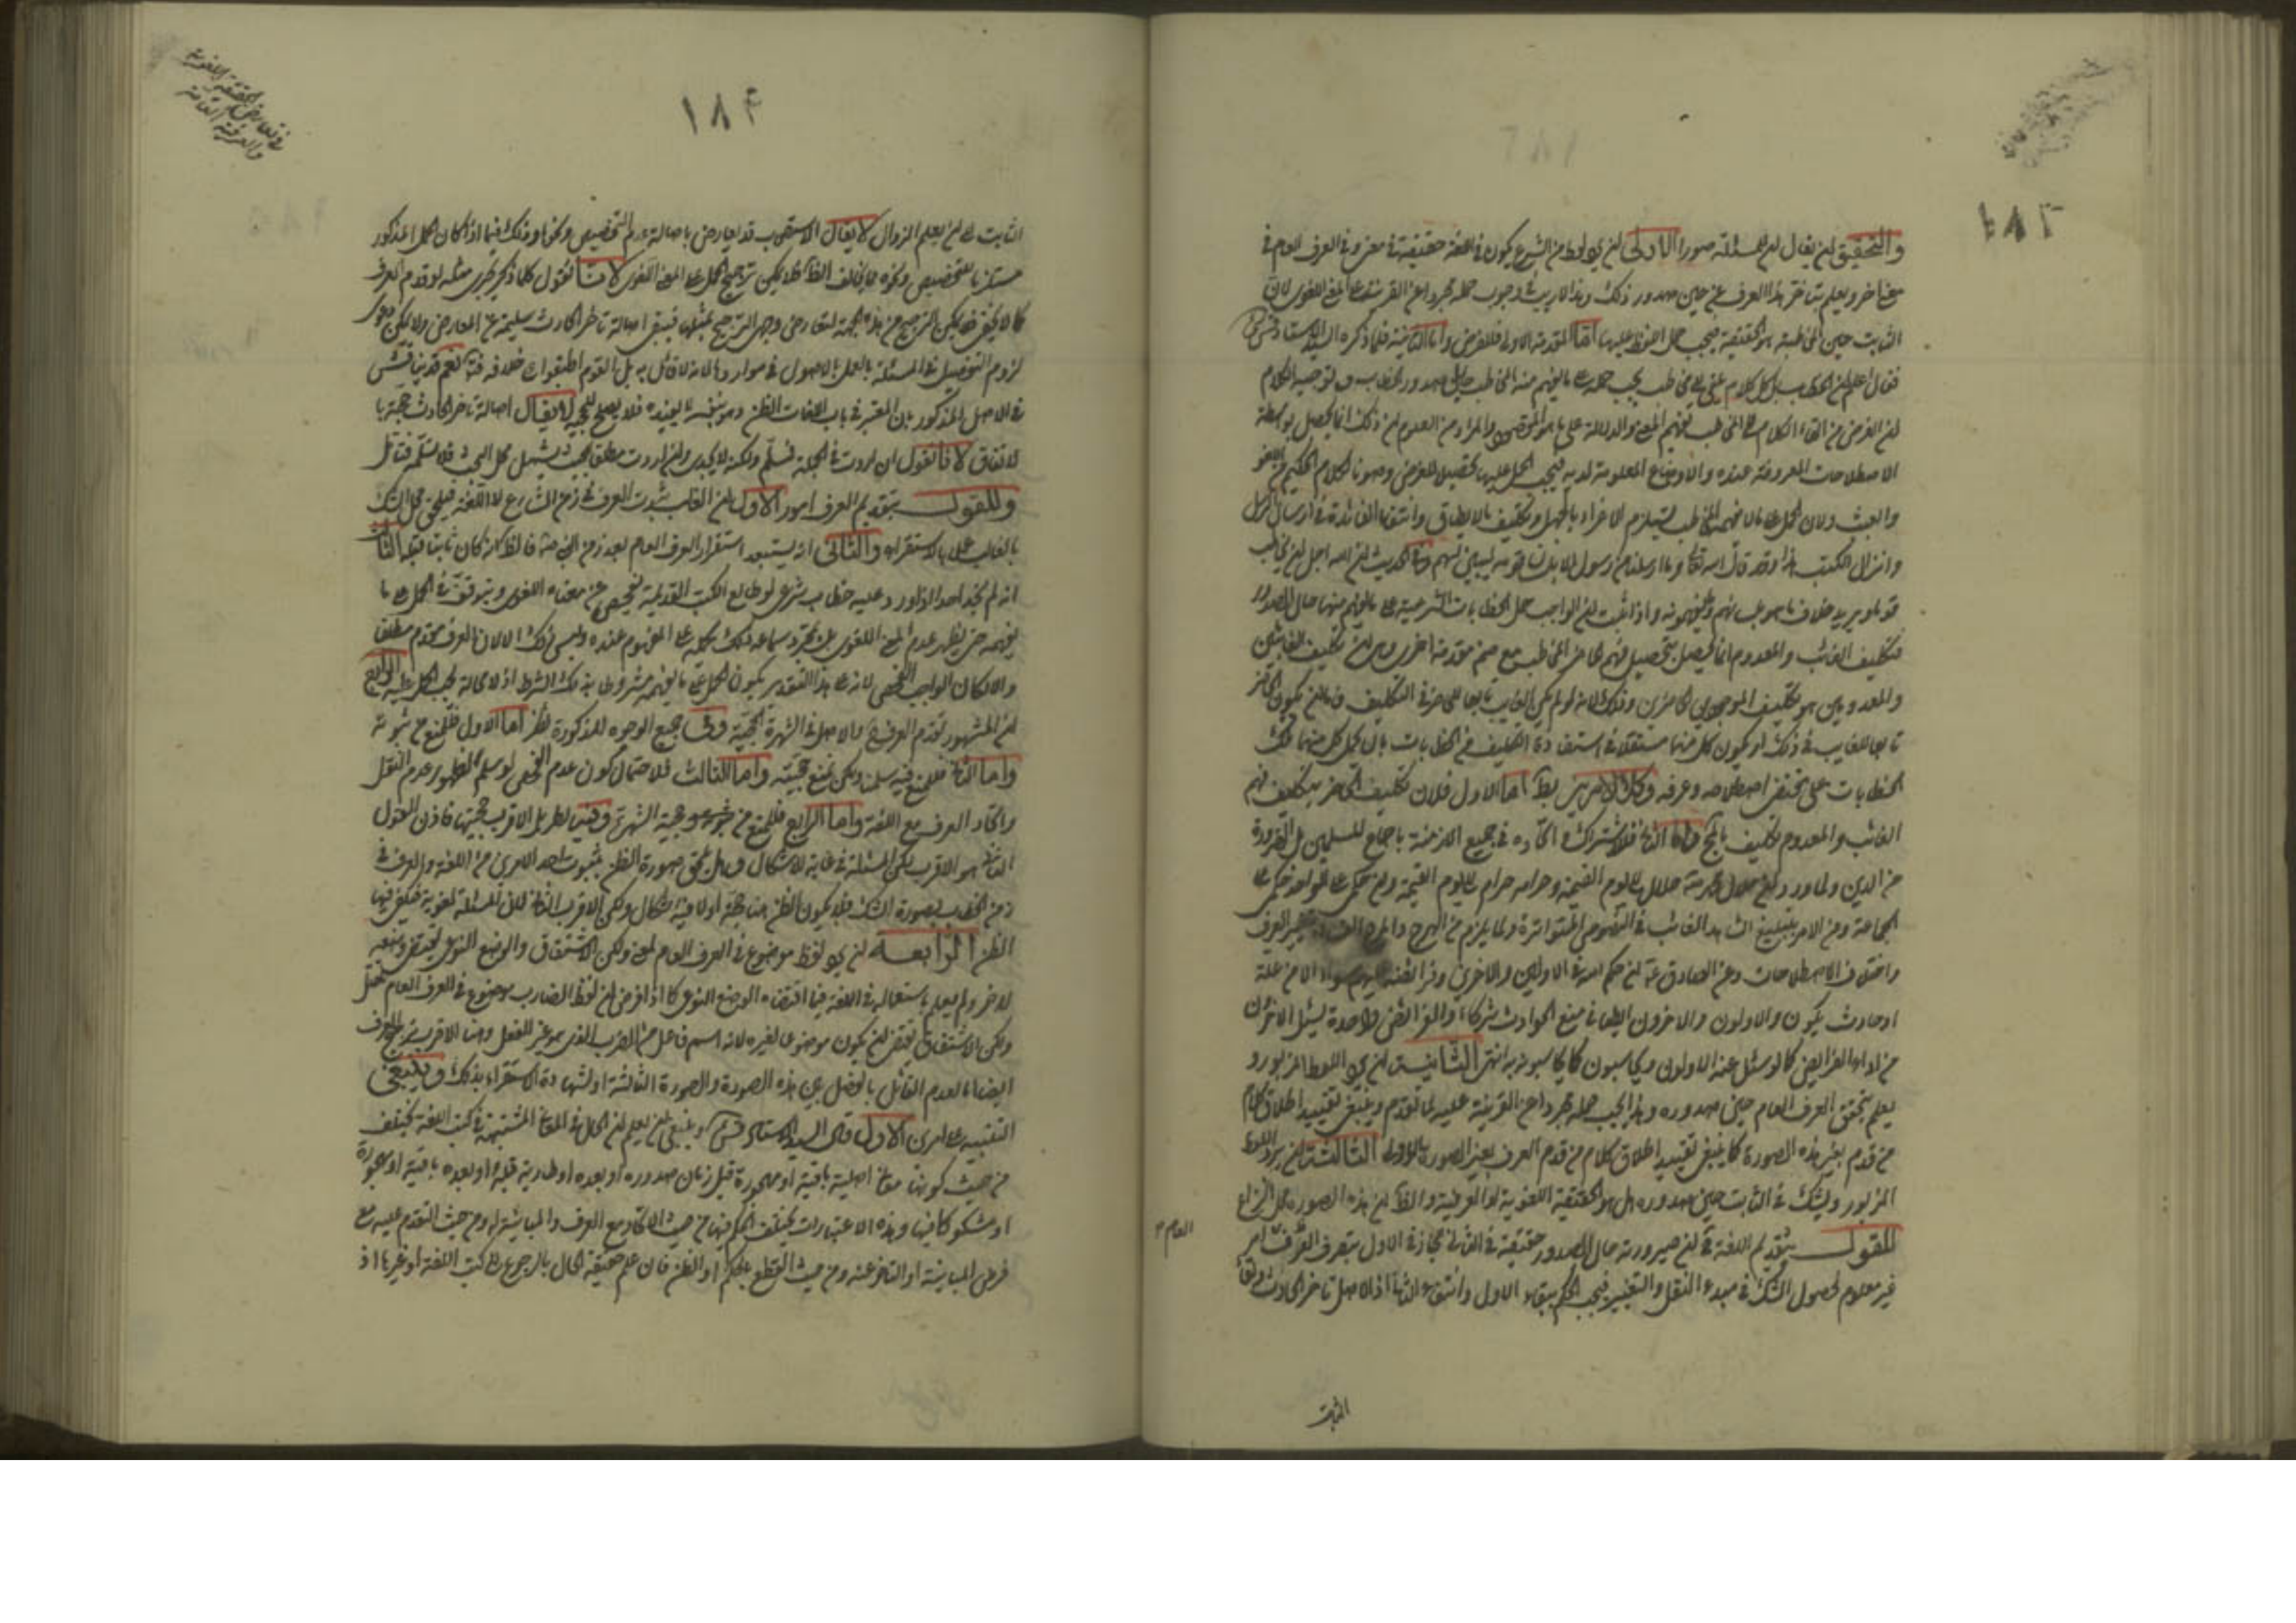 والتحقيق ان يقال ان للمسئلة صورا الاولى ان يرد لفظ من الشرع يكون في اللغة حقيقة في معنى وفي العرف العام في
معنى اخر ويعلم بتاخر هذا العرف عن حين صدور ذلك وهذا لا ريب في وجوب حمله مجردا عن القرينة على المعنى اللغوي لان
الثابت حين المخاطبة هو الحقيقة فيجب حمل اللفظ عليها اما المقدمة الاولى فللفرض واما الثانية فلما ذكره السيد الاستاد
فقال اعلم ان الخطاب بل كل كلام يلقى الى مخاطب يجب حمله على ما يفهم منه المخاطب حال صدور الخطاب وتوجيه الكلام
لان الغرض من القاء الكلام الى المخاطب تفهيم المعنى والدلالة على ما هو المقصود والمراد ومن المعلوم ان ذلك انما يحصل بواسطة
الاصطلاحات المعروفة عنده والاوضاع المعلومة لديه فيجب الحمل عليها تحصيلا للغرض وصونا لكلام الحكيم عن اللغو
والعبث ولان الحمل على ما لا يفهمه المخاطب يستلزم الاغراء بالجهل وتكليف ما لا يطاق وانتفاء الفائدة في ارسال الرسل
وانزال الكتب هذا وقد قال الله تعالى وما ارسلنا من رسول الا بلسان قومه ليبين لهم وفي الحديث ان الله اجل ان يخاطب
قوما ويريد خلاف ما هو بلسانهم وما يفهمونه واذا ثبت ان الواجب حمل الخطابات الشرعية على ما يفهم منها حال الصدور
فتكليف الغائب والمعدوم انما يحصل بتحصيل فهم الحاضر المخاطب مع ضم مقدمة اخرى وهي ان تكليف الغائبين
والمعدومين هو تكليف الموجودين الحاضرين وذلك لانه لو لم يكن الغايب تابعا للحاضر في التكليف فاما ان يكون الحاضر
تابعا للغايب في ذلك او يكون كل منهما مستقلا في استفادة التكليف من الخطابات بان يحمل كل منهما تلك
الخطابات على مقتضى اصطلاحه وعرفه وكلا الامرين بط اما الاول فلان تكليف الحاضر بتكليف فهم
الغائب والمعدوم تكليف بالمحال واما الثاني فلاشتراك واتحاده في جميع الازمنة باجماع المسلمين بل الضرورة
من الدين ولما ورد ان حلال محمد حلال الى يوم القيمة وحرامه حرام الى يوم القيمة وان حكمي على الواحد حكمي على
الجماعة ومن الامر بتبليغ الشاهد الغائب في النصوص المتواترة ولما يلزم من الهرج والمرج بتغير العرف
واختلاف الاصطلاحات وعن الصادق ع ان حكم الله في الاولين والاخرين وفرائضه عليهم سواء الا من علة
او حادث يكون والاولون والاخرون ايضا في منع الحوادث شركاء والفرائض واحدة يسئل الاخرون
من اداء الفرايض كما يسئل عنه الاولون ويحاسبون كما يحاسبون به انتهى الثانية ان يرد اللفظ المزبور و
يعلم بتحقق العرف العام حين صدوره وهذا يجب حمله مجردا عن القرينة عليه لما تقدم وينبغي تقييد اطلاق كلام
من قدم بغير هذه الصورة كما ينبغي تقييد اطلاق كلام من قدم العرف بغير الصورة الاولى الثالثة ان يرد اللفظ
المزبور ويشك في الثابت حين صدوره هل هو الحقيقة اللغوية او العرفية والظ ان هذه الصورة محل النزاع
للقول بتقديم اللغة ان صيرورته حال الصدور حقيقة في الثاني مجاز في الاول بتصرف العرف امر
غير معلوم لحصول الشك في مبدء النقل والتغيير فيجب الحكم ببقاء الاول وانتفاء الثاني اذ الاصل تاخر الحادث وبقاء
العام
الثابت
١٨٣
١٨٤
في تعارض الحقيقة اللغوية
والعرفية العامة
الثابت الى ان يعلم الزوال لا يقال الاستصحاب قد يعارض باصالة عدم التخصيص ونحوها وذلك فيما اذا كان الحمل المذكور
مستلزما للتخصيص ونحوه مما يخالف الظ فلا يمكن ترجيح الحمل على المعنى اللغوي لانا نقول كلما ذكر يجري مثله لو قدم العرف
كما لا يخفى فلا يمكن الترجيح من هذه الجهة لتعارض وجهي الترجيح بمثلها فيبقى اصالة تاخر الحادث سليمة عن المعارض ولا يمكن دعوى
لزوم التفصيل في المسئلة بالعمل بالاصول في مواردها لانه لا قائل به بل القوم اطبقوا على خلافه فتأمل نعم قد يناقش
في الاصل المذكور بان المعتبر في باب اللغات الظن وهو بنفسه لا يفيده فلا يصلح للحجية لا يقال اصالة تاخر الحادث حجة با
لاتفاق لانا نقول ان اردت في الجملة فمسلم ولكنه لا يجدي وان اردت مطلقا بحيث يشمل محل البحث فلا نسلمه فتأمل
وللقول بتقديم العرف امور الاول ان الغالب ثبوت العرف في زمن الشارع لا اللغة فيلحق محل الشك
بالغالب عملا بالاستقراء والثاني انه يستبعد استقرار العرف العام بعد زمن الخطاب فالظ انه كان ثابتا قبله الثالث
انه لم نجد احدا اذا ورد عليه خطاب شرعي لو طالع الكتب القديمة يتفحص عن معناه اللغوي ويتوقف في الحمل على ما
يفهمه حتى يظهر عدم المعنى اللغوي بل بمجرد سماعه ذلك يحمله على المفهوم عنده وليس ذلك الا لان العرف مقدم مطلقا
والا لكان الواجب الفحص لانه على هذا التقدير يكون الحمل على ما يفهمه مشروطا بذلك الشرط اذ لا محالة يجب الحمل عليه الرابع
ان المشهور تقدم العرف والاصل في الشهرة الحجية وفي جميع الوجوه المذكورة نظر اما الاول فللمنع من ثبوته
واما الثاني فللمنع فيه سلمنا ولكن نمنع حجيته واما الثالث فلاحتمال كون عدم الفحص لو سلم لظهور عدم النقل
واتحاد العرف مع اللغة واما الرابع فللمنع من ثبوته وحجية الشهرة وفيه نظر بل الاقرب حجيتها فاذن القول
الثاني هو الاقرب لكن المسئلة في غاية الاشكال وهل يلحق صورة الظن بثبوت احد الامرين من اللغة والعرف في
زمن الخطاب بصورة الشك فلا يكون الظن هنا حجة اولا فيه اشكال ولكن الاقرب الثاني لان المسئلة لغوية فيكفي فيها
الظن الرابعة ان يرد لفظ موضوع في العرف العام لمعنى ولكن الاشتقاق والوضع النوعي يقتضي وضعه
لاخر ولم يعلم باستعماله في اللغة فيما اقتضاه الوضع النوعي كما اذا فرض ان لفظ الضارب موضوع في العرف العام
ولكن الاشتقاق يقتضي ان يكون موضوعا لغيره لانه اسم فاعل من الضرب الذي هو غير الفعل وهنا الاقرب ترجيح العرف
ايضا لعدم القائل بالفصل بين هذه الصورة والصورة الثالثة ولشهادة الاستقراء بذلك وينبغي
التنبيه على امرين الاول قال السيد الاستاد وينبغي ان يعلم ان الحال في المعاني المشتبهة في كتب اللغة يختلف
من حيث كونها معاني اصلية باقية او مهجورة قبل زمان صدوره او بعده او طارية قبله او بعده باقية او مهجورة
او مشكوكا فيها وبهذه الاعتبارات يختلف الحكم فيها من حيث الاتحاد مع العرف والمباينة له ومن حيث التقدم عليه مع
فرض المباينة او التاخر عنه ومن حيث القطع بالحكم او الظن فان علم حقيقة الحال بالرجوع الى كتب اللغة او غيرها اذ